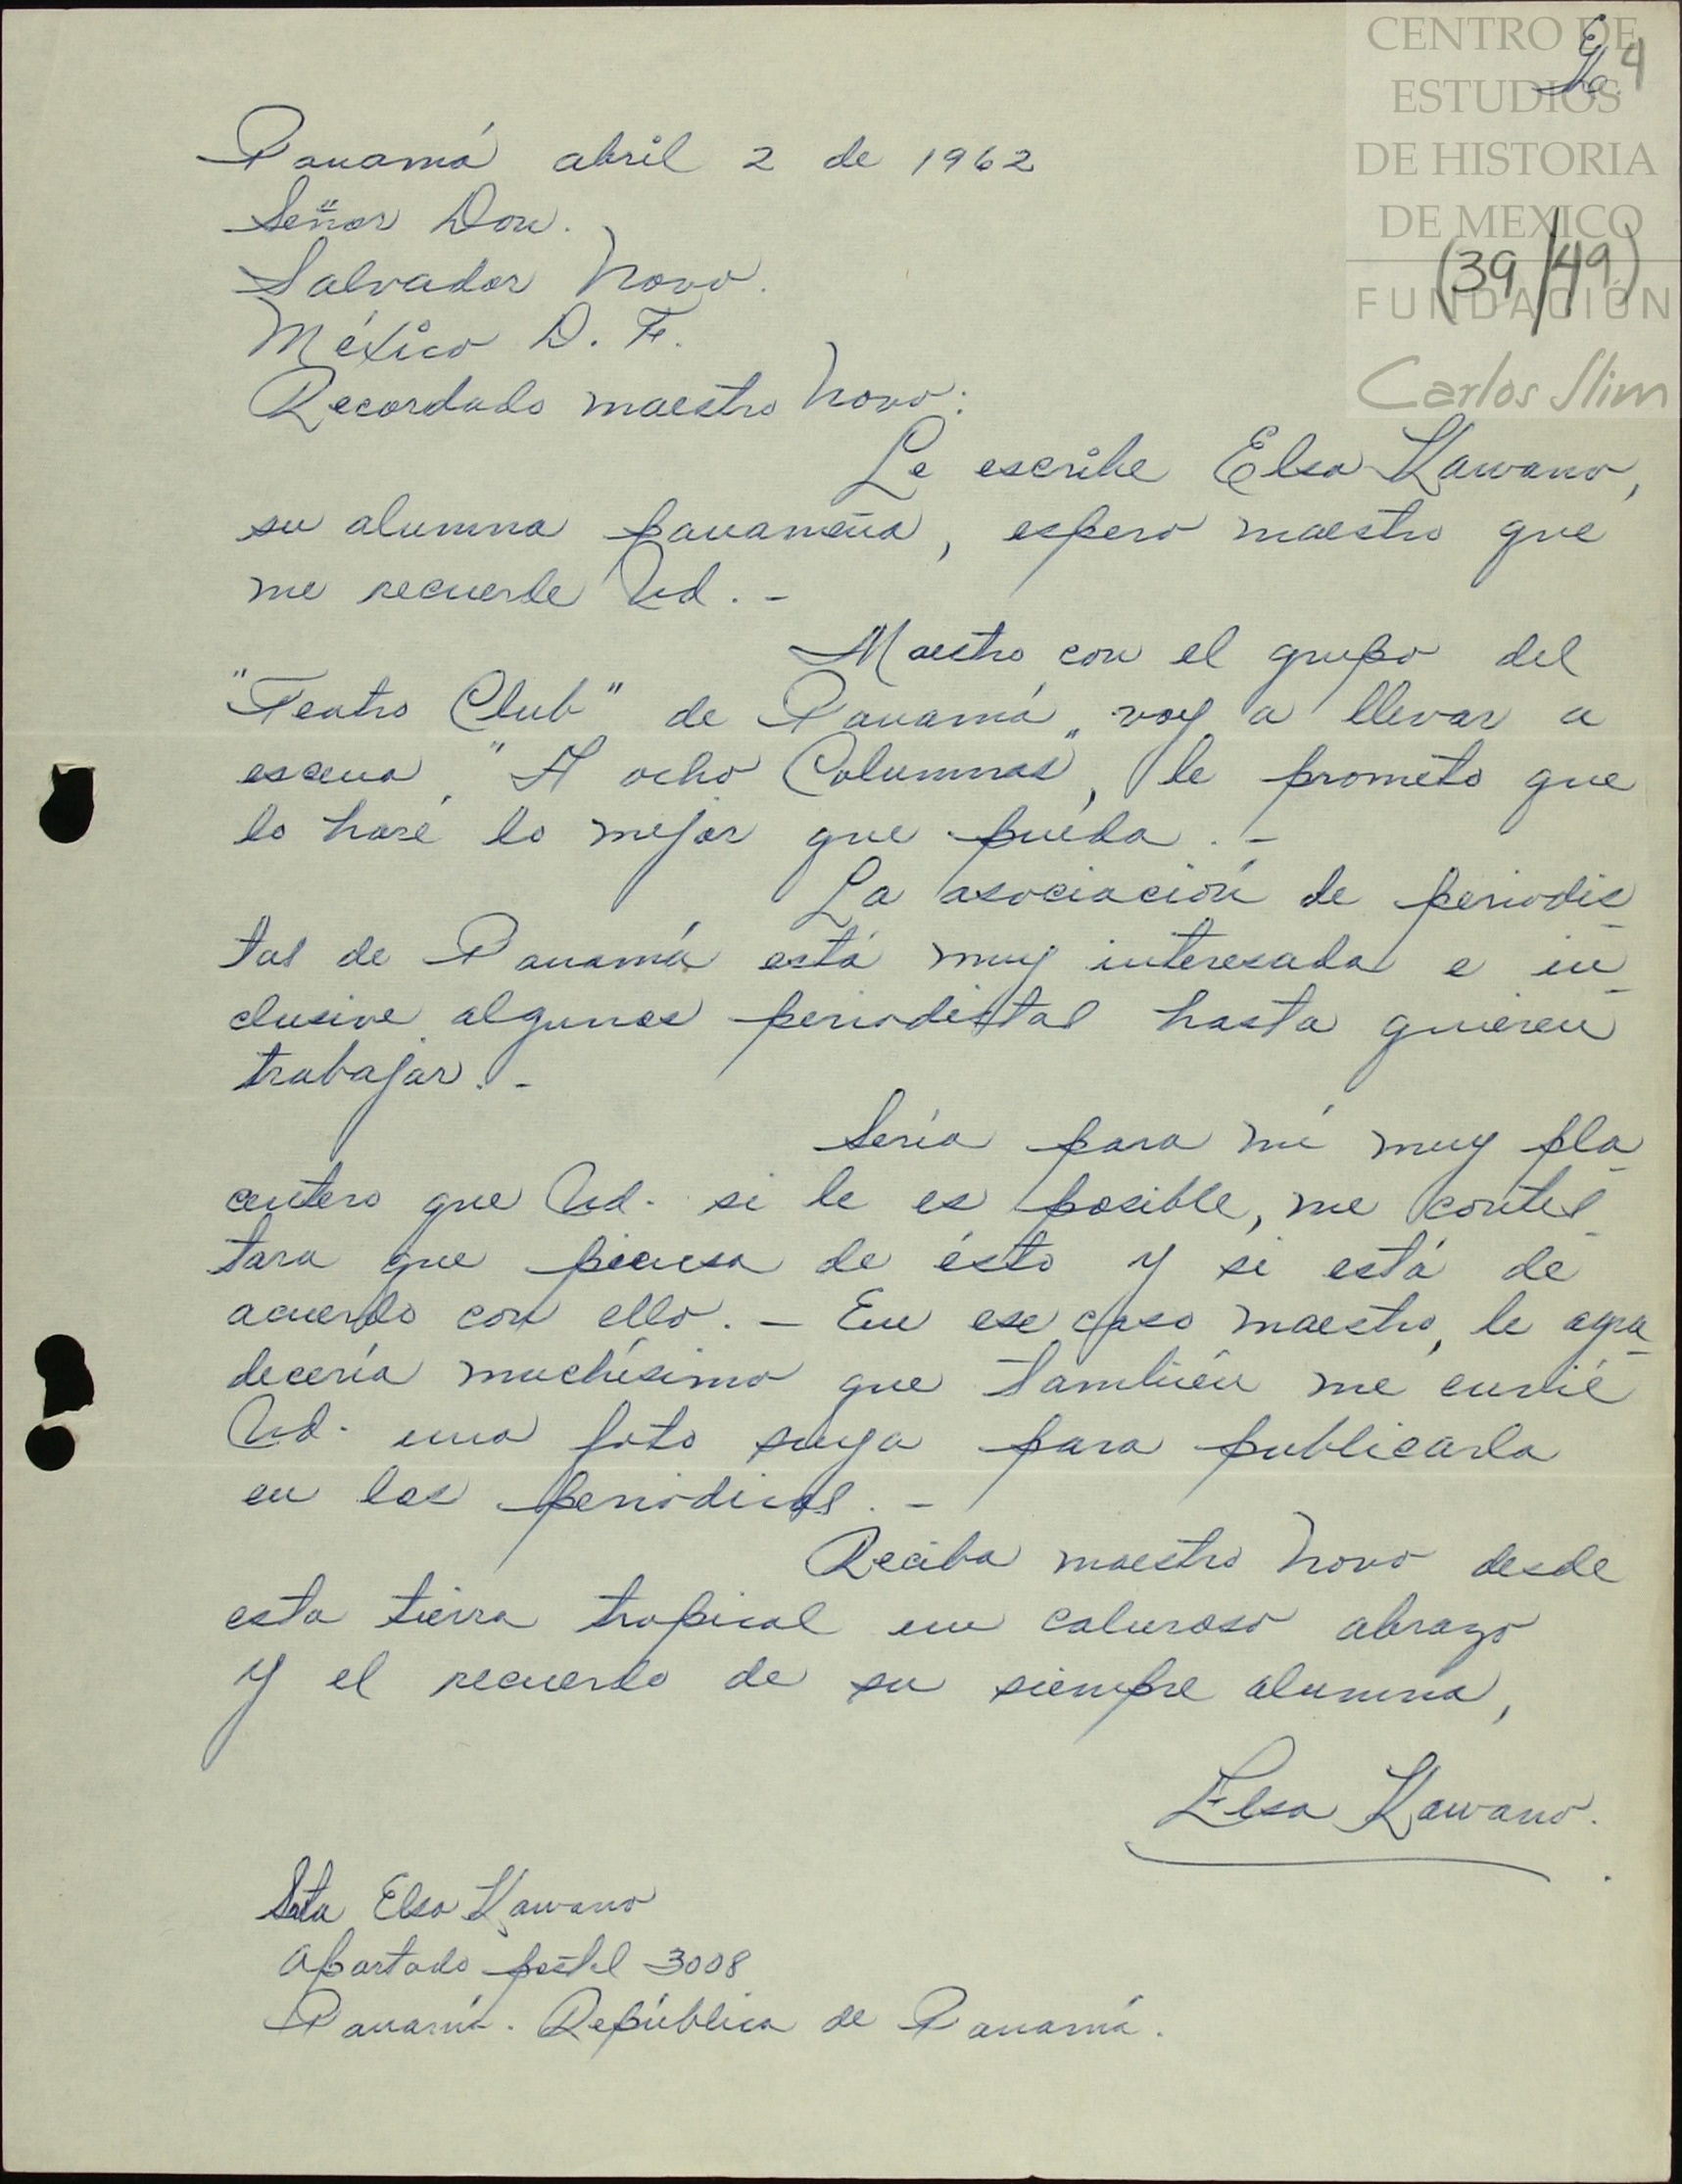 CENTRO DE
ESTUDIOS
DE HISTORIA
DE MEXICO
(39/49)
FUNDACIÓN
Carlos Slim
Panamá abril 2 de 1962
Señor Don.
Salvador Novo.
México D. F.
Recordado maestro Novo:
Le escribe Elsa Kawano,
su alumna panameña, espero maestro que
me recuerde Ud. -
Maestro con el grupo del
"Teatro Club" de Panamá, voy a llevar a
escena, "A ocho Columnas", le prometo que
lo haré lo mejor que pueda. -
La asociación de periodis
tas de Panamá está muy interesada e in
clusive algunos periodistas hasta quieren
trabajar. -
Sería para mí muy pla
centero que Ud. si le es posible, me contes
tara que piensa de ésto y si está de
acuerdo con ello. - En ese caso maestro, le agra
decería muchísimo que también me envíe
Ud. una foto suya para publicarla
en los periódicos. -
Reciba maestro Novo desde
esta tierra tropical un caluroso abrazo
y el recuerdo de su siempre alumna,
Elsa Kawano.
Srta Elsa Kawano
Apartado postal 3008
Panamá. República de Panamá.